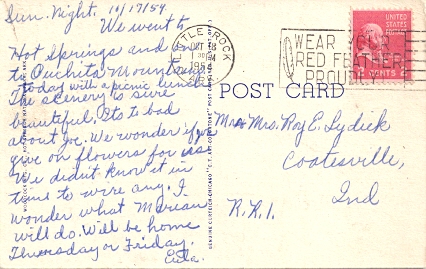 Sun. Night. 10/17/54
We went to
Hot Springs and on
to Ouchita Mountains
today with a picnic lunch.
The scenery is sure
beautiful. Its to bad
about Joe. We wonder if you
give on flowers for us.
We didn't know it in
time to wire any. I
wonder what Marian
will do. Will be home
Thursday or Friday.
Eula.
LITTLE ROCK
OCT 18
1 PM
1954
WEAR YOUR
RED FEATHER
PROUDLY
UNITED STATES
POSTAGE
2 CENTS 2
POST CARD
Mr & Mrs. Roy E. Lydick
Coatesville,
Ind
R.R.1.